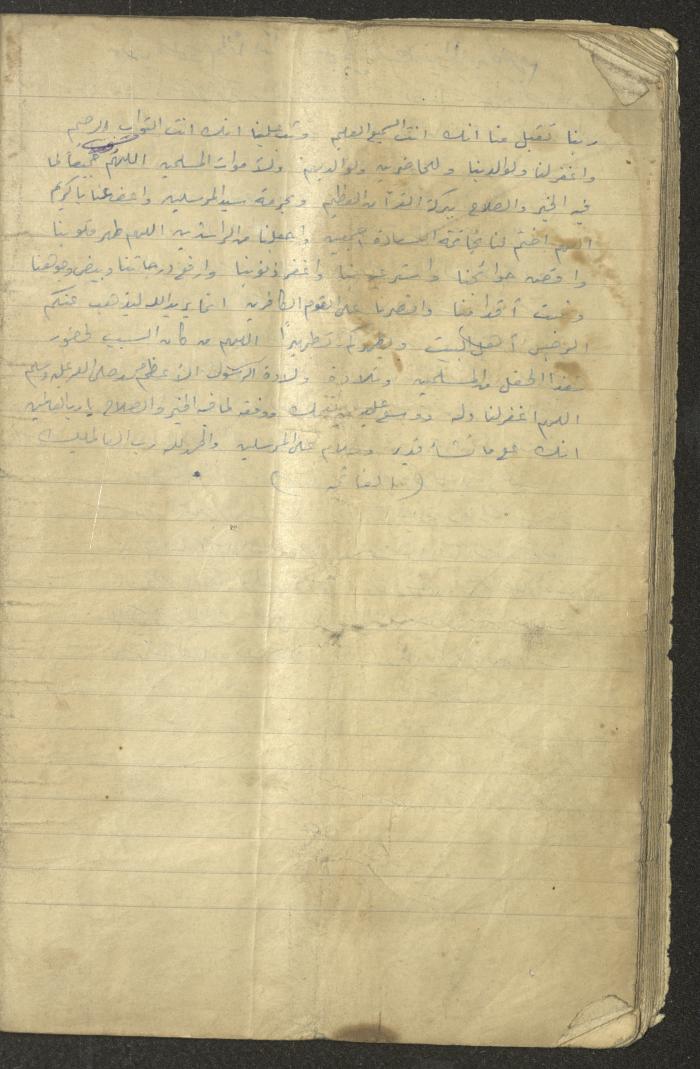 ربنا تقبل منا انك انت السميع العليم وتب علينا انك انت التواب الرحيم
واغفر لنا ولوالدينا وللحاضرين ولوالديهم ولأموات المسلمين اللهم جميعاً لما
فيه الخير والصلاح ببركة القرآن العظيم وبحرمة سيد المرسلين واعف عنا يا كريم
اللهم اختم لنا بخاتمة السعادة أجمعين واجعلنا من الراشدين اللهم طهر قلوبنا
واقض حوائجنا واستر عيوبنا واغفر ذنوبنا وارفع درجاتنا وبيض وجوهنا
وثبت أقدامنا وانصرنا على القوم الكافرين انما يريد الله ليذهب عنكم
الرجس أهل البيت ويطهركم تطهيراً اللهم من كان السبب لحضور
هذا الحفل من المسلمين وتلاوة ولادة الرسول الأعظم محمد صلى الله عليه وسلم
اللهم اغفر لنا وله ووسع عليه ووفقه لما فيه الخير والصلاح يا رب العالمين
انك على ما تشاء قدير وسلام على المرسلين والحمد لله رب العالمين
(الفاتحة)